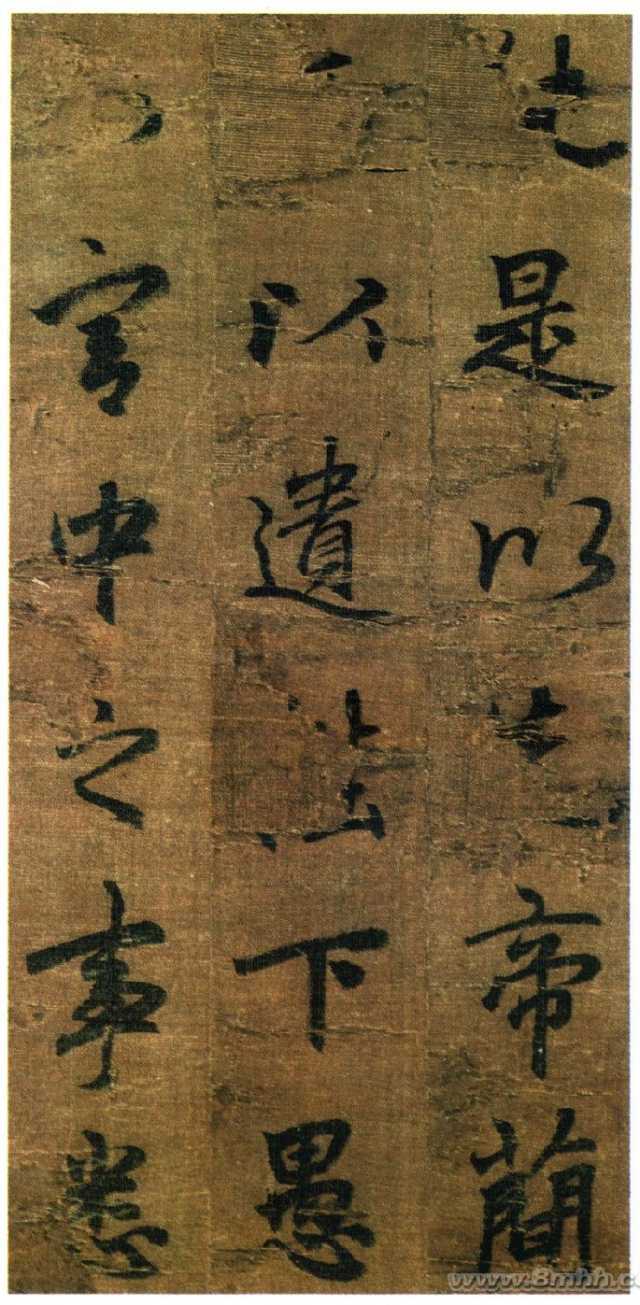 是以先帝簡
以遺陛下愚
宮中之事悉
www.8mhh.c